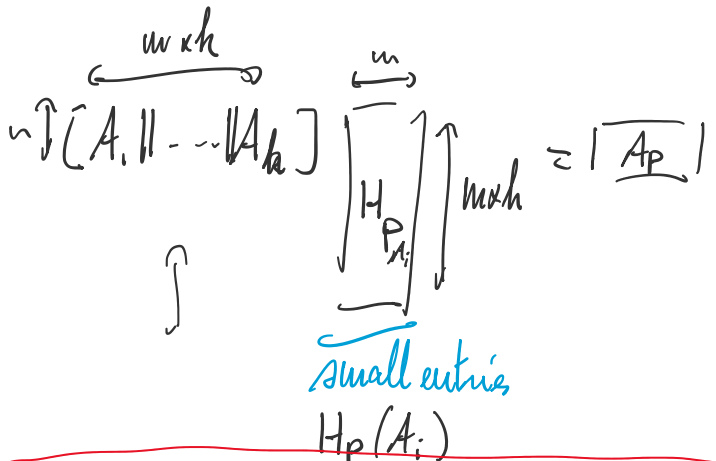 m×k m
n [A₁ ‖ ---- ‖ A_k] H_{P_{A_i}} m×k = A_P
small entries
H_P(A_i)